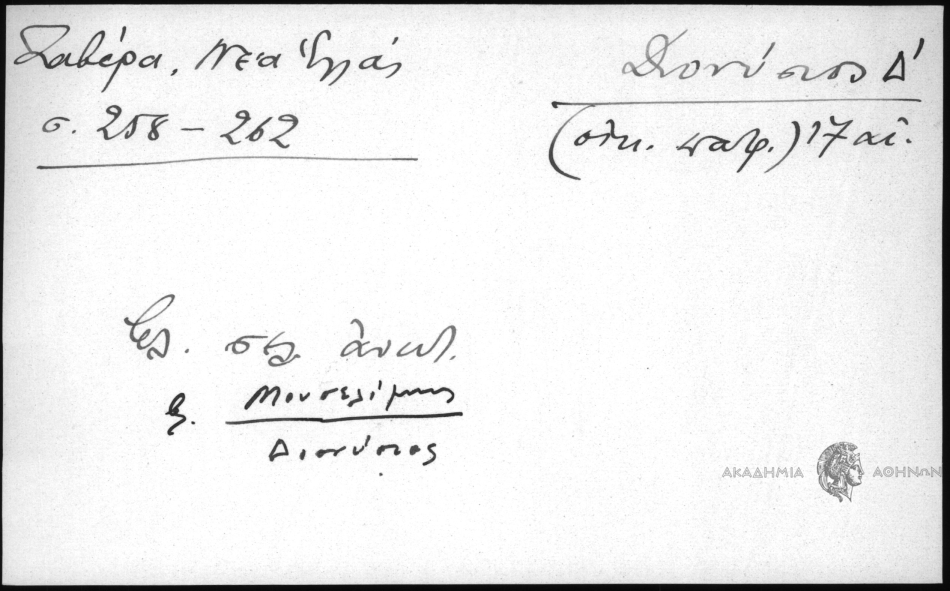 Ζαβίρα, Νέα Ἑλλάς
σ. 258 – 262
Διονύσιος Δ΄
(οἰκ. πατρ.) 17 αἰ.
Βλ. σελ. ἀνωτ.
βλ. Μουσελίμης
Διονύσιος
ΑΚΑΔΗΜΙΑ ΑΘΗΝΩΝ